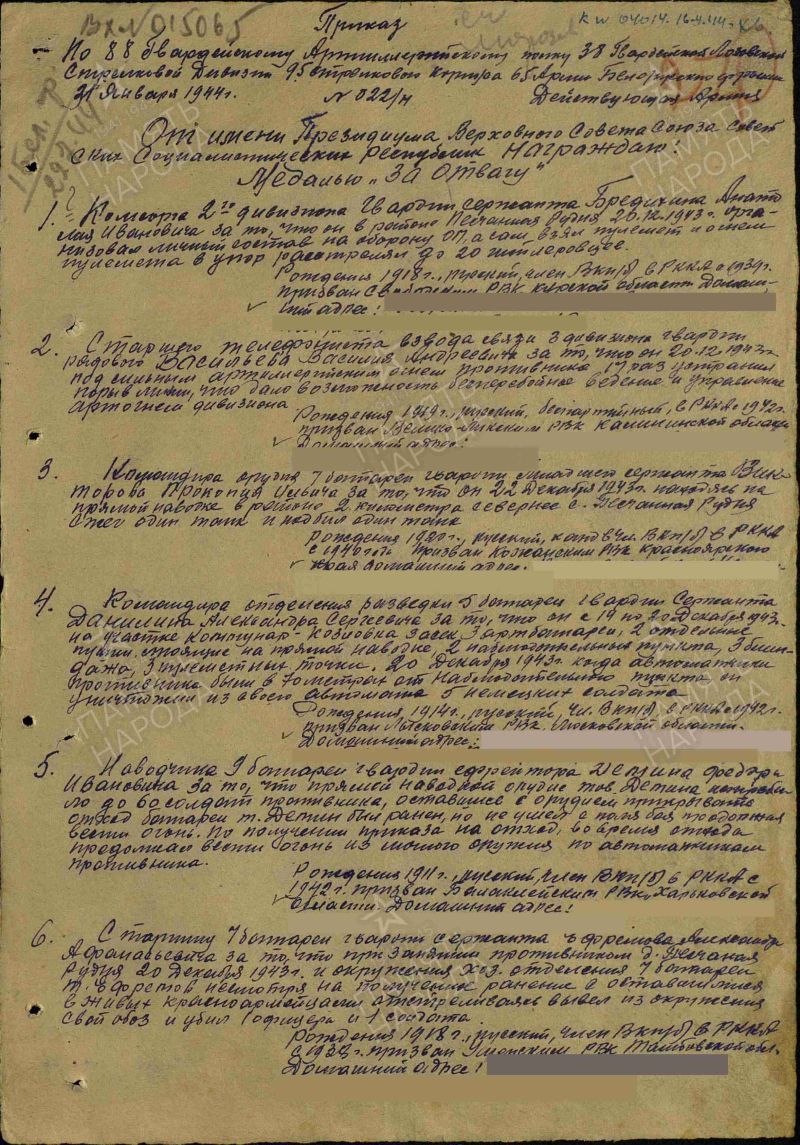 Вх. № 015065
Приказ
По 88 Гвардейскому Артиллерийскому полку 38 Гвардейской Лозовской
Стрелковой Дивизии 95 стрелкового корпуса 65 Армии Белорусского фронта
31 Января 1944 г. № 022/н Действующая Армия
От имени Президиума Верховного Совета Союза Совет
ских Социалистических республик Награждаю:
Медалью „За Отвагу"
1. Комсорга 2го дивизиона гвардии сержанта Бредихина Анато
лия Ивановича за то, что он в районе Песчанная Рудня 20.12.1943 г. орга-
низовал личный состав на оборону ОП, а сам взял пулемет и огнем
пулемета в упор расстрелял до 20 гитлеровцев.
Рождения 1918 г., русский, член ВКП/б/ в РККА с 1939 г.
призван РВК Курской области Домаш-
ний адрес:
2. Старшего телефониста взвода связи 3 дивизиона гвардии
рядового Васильева Василия Андреевича за то, что он 20.12.1943 г.
под сильным артиллерийским огнем противника 19 раз устранял
порыв линии, что дало возможность бесперебойное ведение и управление
артогнем дивизиона
Рождения 1919 г., русский, беспартийный, в РККА с 1942 г.
призван РВК Калининской области
Домашний адрес:
3. Командира орудия 7 баттареи гвардии младшего сержанта Вик-
торова Прокопия за то, что он 22 Декабря 1943 г. находясь на
прямой наводке в районе 2 километра севернее с. Песчанная Рудня
сжег один танк и подбил один танк
Рождения 1920 г., русский, канд в чл. ВКП/б/ в РККА
с 1940 года призван РВК Красноярского
края домашний адрес.
4. Командира отделения разведки 5 баттареи гвардии Сержанта
Данилина Александра Сергеевича за то, что он с 19 по 20 Декабря 1943 г.
на участке Коммунар-Козловка засек 3 артбаттареи, 2 отдельные
пушки, стоящие на прямой наводке, 2 наблюдательных пункта, 3 блин-
дажа, 3 пулеметных точки. 20 Декабря 1943 г. когда автоматчики
противника были в 70 метрах от наблюдательного пункта, он
уничтожил из своего автомата 5 немецких солдата
Рождения 1914 г., русский, чл. ВКП/б/ в РККА с 1942 г.
призван РВК. области.
Домашний адрес:
5. Наводчика 9 баттареи гвардии ефрейтора Детина Федора
Ивановича за то, что прямой наводкой орудие тов. Детина
ло до 60 солдат противника, оставшись с орудием прикрывать
отход баттареи т. Детин был ранен, но не ушел с поля боя продолжая
вести огонь. По получении приказа на отход, во время отхода
продолжал вести огонь из личного оружия по автоматчикам
противника.
Рождения 1911 г., русский, член ВКП/б/ в РККА с
1942 г. призван Балаклейским РВК, Харьковской
области. Домашний адрес:
6. Старшину 7 баттареи гвардии сержанта Ефремова Александра
Афанасьевича за то, что при занятии противником д. Песчаная
Рудня 20 Декабря 1943 г. и окружения хоз. отделения 7 баттареи
т. Ефремов несмотря на получение ранение с оставшимися
в живых красноармейцами отстреливаясь вывел из окружения
свой обоз и убил 1 офицера и 1 солдата.
Рождения 1918 г., русский, член ВКП/б/ в РККА
с 1938 г. призван РВК Тамбовской обл.
Домашний адрес:
ПАМЯТЬ
НАРОДА